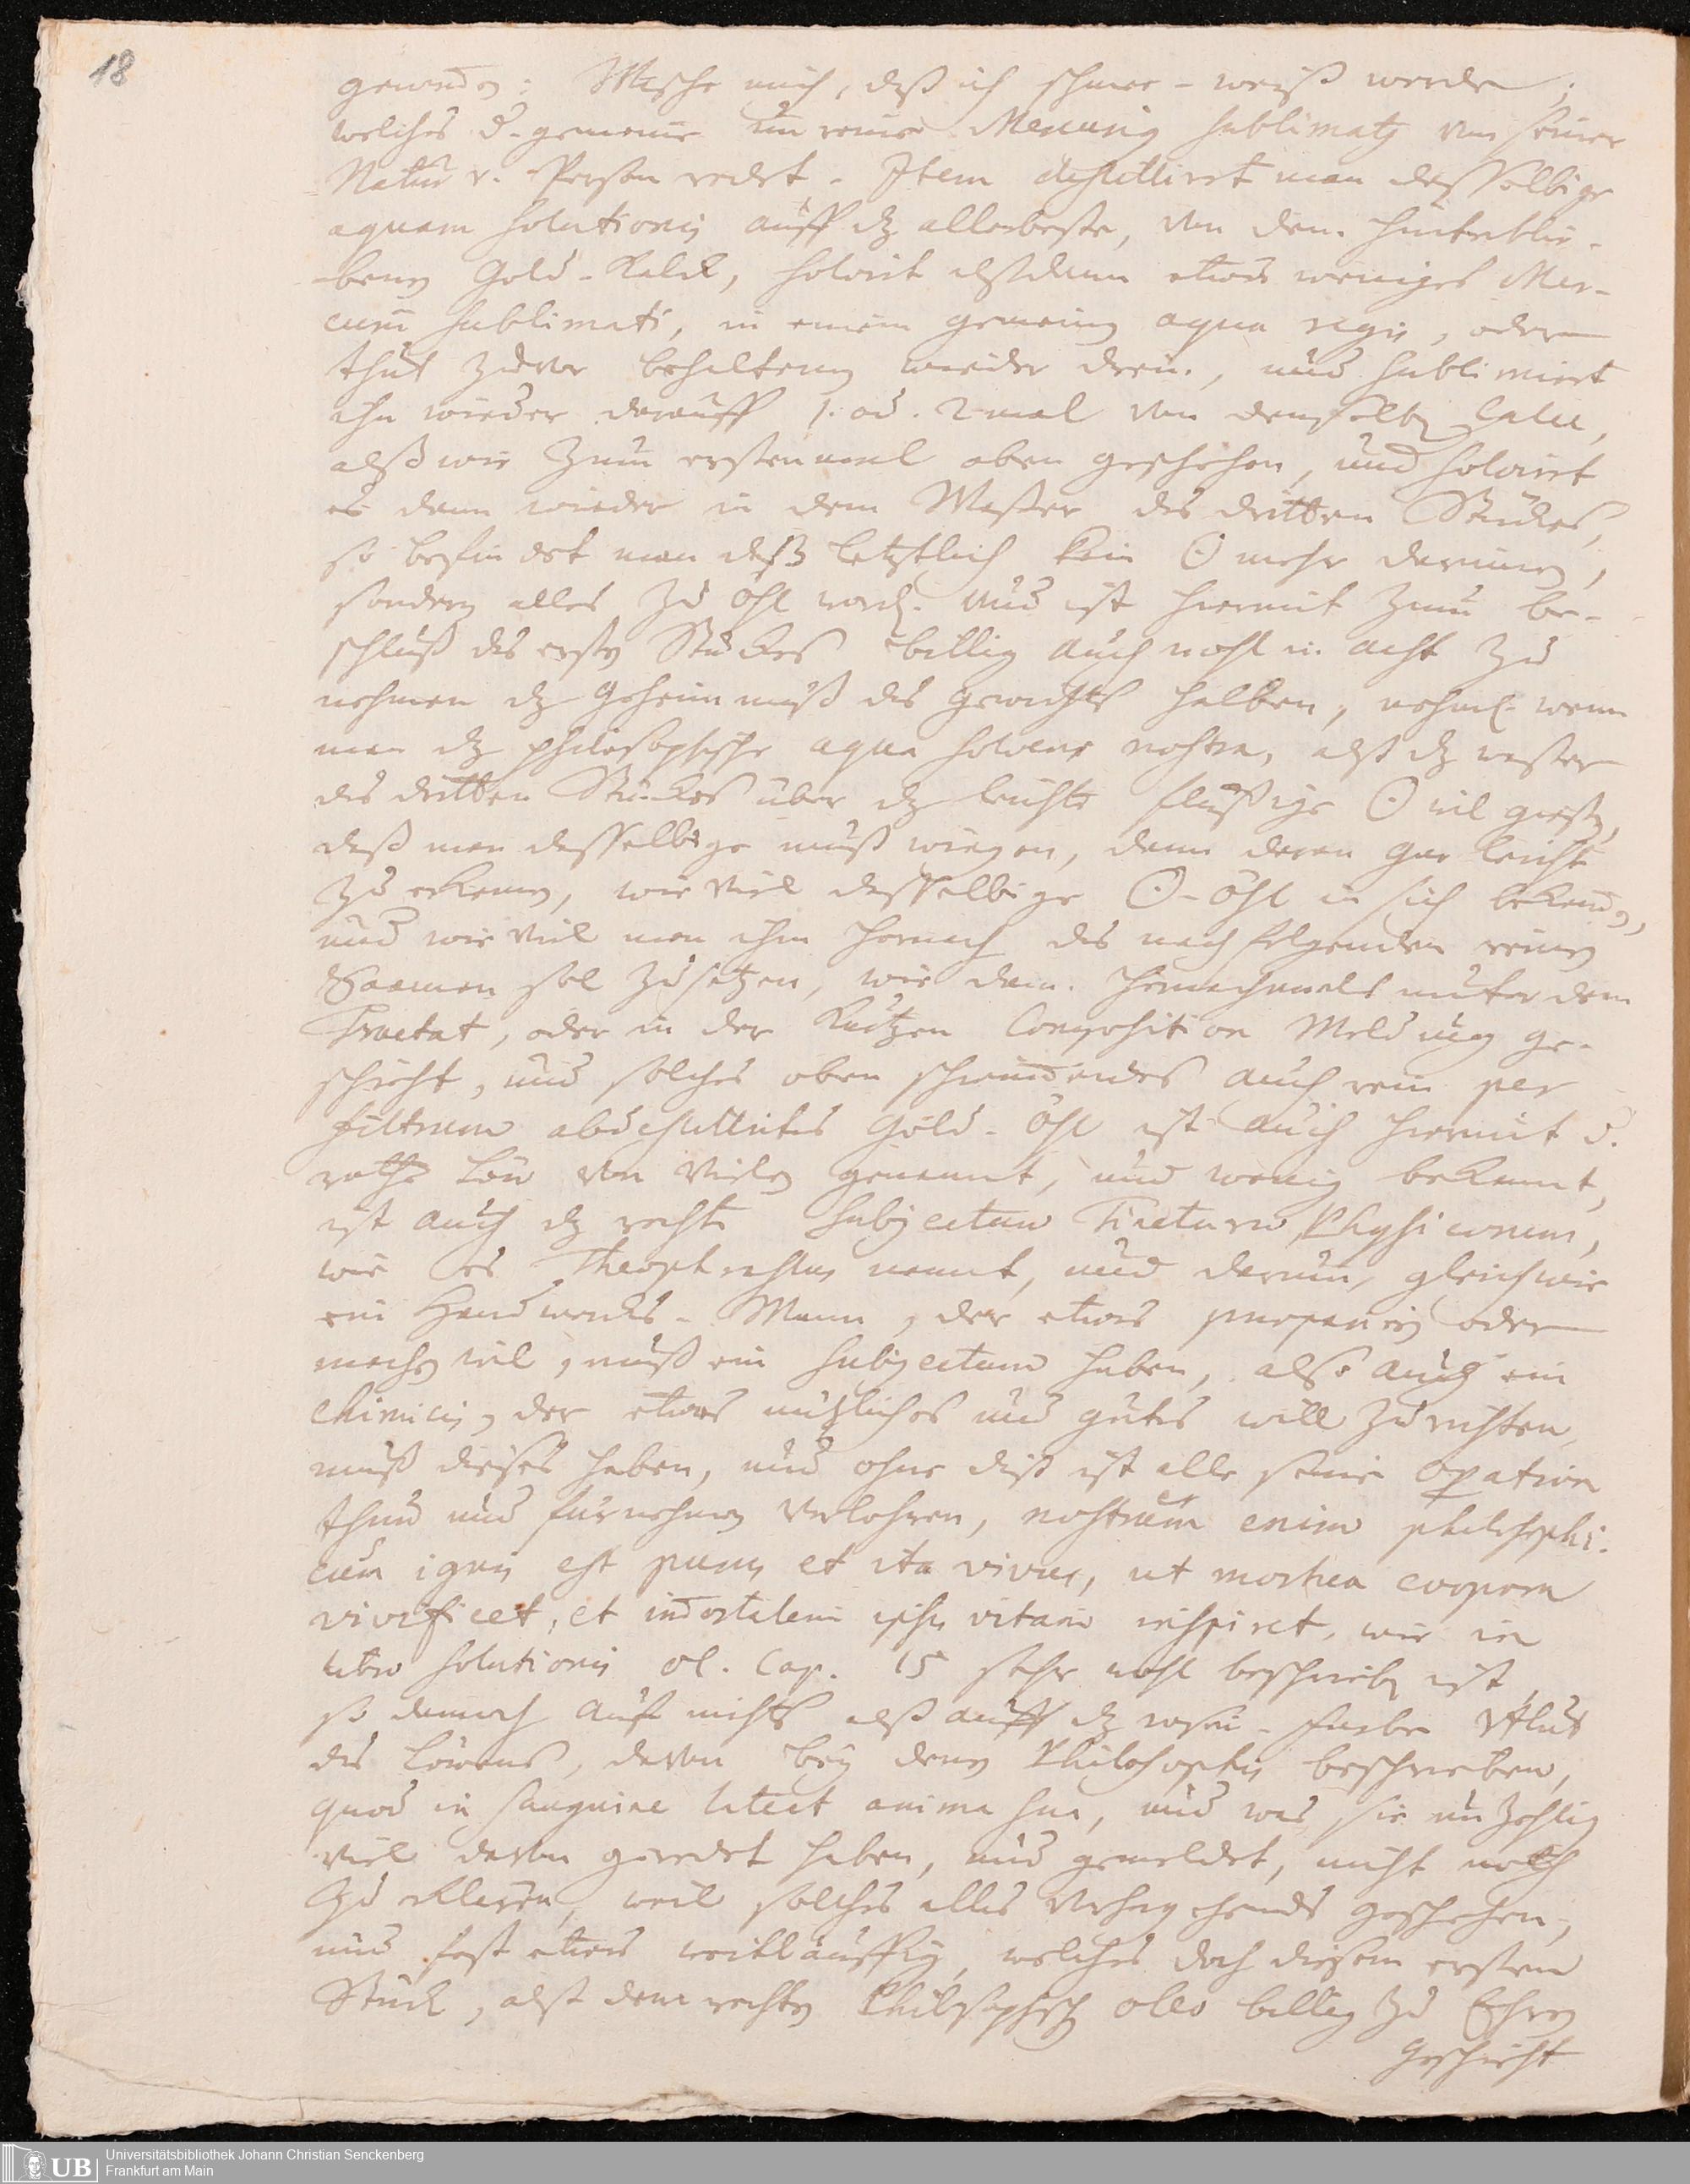 18
geworden: Wasche mich, daß ich schnee-weiß werde;
welches d. gemeine unreine Meinung sublimatz von seiner
Natur v. Person redet. Item destilliret man dasselbige
aquam solutionis auff dz allerbeste, von dem hinterblie-
benen Gold-Kalck, solvirt alßdann etwas weniges Mer-
curii sublimati, in einem gemeinen aqua regis, oder
thut zuvor behaltenen wieder drein, und sublimiert
ihn wieder darauff 1. od. 2 mal von demselben Calce,
alß wie zum erstenmal oben geschehen, und solvirt
es dann wieder in dem Wasser des dritten Stückes,
so befindet man daß letztlich kein ☉ mehr darinnen,
sondern alles zu öhl word. Und ist hiermit zum be-
schluß des ersten Stückes billig auch wohl in acht zu
nehmen dz Geheimnuß des Gewichts halben, nehml. wenn
man dz philosophische aqua solvens nostra, alß dz wasser
des dritten Stückes über dz leichte flüssige ☉ wil giessen,
daß man dasselbige muß wiegen, dann daran gar leicht
zu erkennen, wie viel dasselbige ☉-öhl in sich bekommen,
und wie viel man ihm hernach des nachfolgenden reinen
Saamen sol zusetzen, wie dann hernachmals unter dem
Tractat, oder in der kurtzen Composition Meldung ge-
schieht, und solches oben schwimmendes auch rein per
filtrum abdestillirtes Gold-öhl ist auch hiermit d.
rothe Löw von vielen genannt, und wenig bekannt,
ist auch dz rechte subjectum Tincturae Physicorum,
wie es Theophrastus nennt, und darum, gleichwie
ein Handwercks-Mann, der etwas praeparirn oder
machen wil, muß ein subjectum haben, also auch ein
Chimicus, der etwas nutzliches und gutes will zurichten,
muß dieses haben, und ohne diß ist alle seine operation
thun und fürnehmen verlohren, nostrum enim philosophi-
cum ignis est purus et ita vivus, ut mortua corpora
vivificet, et immortalem ipsis vitam inspiret, wie in
libro solutionis ol. Cap. 15 sehr wohl beschrieben ist,
so dennoch auf nichts alß auff dz rosin-farbe Blut
des Löwens, davon bey denen Philosophis beschrieben,
quod in sanguine lateat anima sua, und was sie unzehlig
viel davon geredet haben, und gemeldet, nicht noth
zu erklären, weil solches alles vorhergehends geschehen,
und fast etwas weitläuffig, welches doch diesem ersten
Stück, alß dem rechten Philosophisch oleo billig zu Ehren
geschieht
UB Universitätsbibliothek Johann Christian Senckenberg
Frankfurt am Main